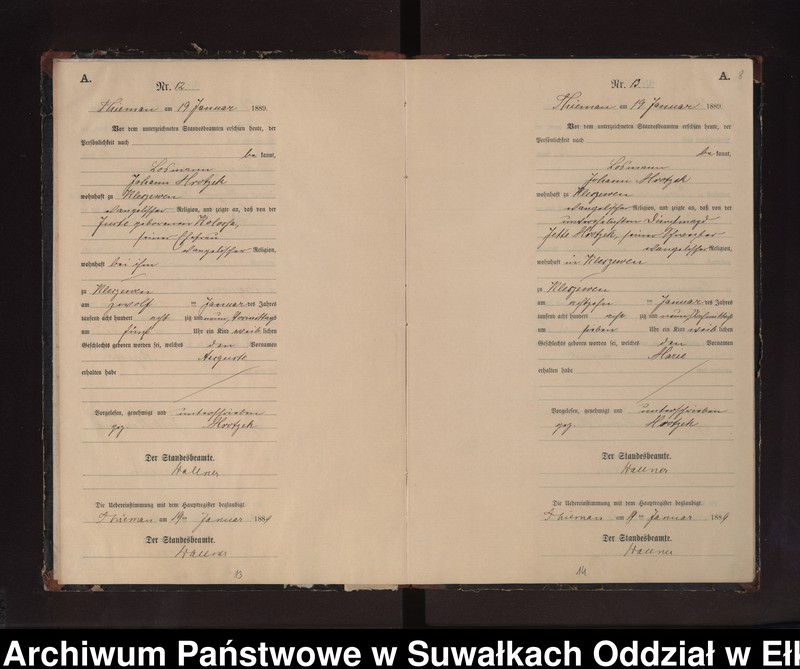 A.
Nr. 12
Thieman am 19 Januar 1889.
Vor dem unterzeichneten Standesbeamten erschien heute, der
Persönlichkeit nach
be kannt,
Losmann
Johann Hortzek
wohnhaft zu Kleszewen
evangelischer Religion, und zeigte an, daß von der
geborenen
seiner Ehefrau
evangelischer Religion,
wohnhaft bei ihm
zu Kleszewen
am zwölf ten Januar des Jahres
tausend acht hundert acht zig und neun, Vormittags
um fünf Uhr ein Kind weib lichen
Geschlechts geboren worden sei, welches den Vornamen
Auguste
erhalten habe
Vorgelesen, genehmigt und unterschrieben
gez. Hortzek
Der Standesbeamte.
Wallner
Die Uebereinstimmung mit dem Hauptregister beglaubigt.
Thieman am 19ten Januar 1889
Der Standesbeamte.
Wallner
13
A. 8
Nr. 13.
Thieman am 19 Januar 1889.
Vor dem unterzeichneten Standesbeamten erschien heute, der
Persönlichkeit nach
be kannt,
Losmann
Johann Hortzek
wohnhaft zu Kleszewen
evangelischer Religion, und zeigte an, daß von der
unverehelichten Dienstmagd
Jette Hortzek, seiner Schwester
evangelischer Religion,
wohnhaft in Kleszewen
zu Kleszewen
am achtzehn ten Januar des Jahres
tausend acht hundert acht zig und neun, Nachmittags
um sieben Uhr ein Kind weib lichen
Geschlechts geboren worden sei, welches den Vornamen
Marie
erhalten habe
Vorgelesen, genehmigt und unterschrieben
gez. Hortzek
Der Standesbeamte.
Wallner
Die Uebereinstimmung mit dem Hauptregister beglaubigt.
Thieman am 19 Januar 1889
Der Standesbeamte.
Wallner
14
Archiwum Państwowe w Suwałkach Oddział w Eł